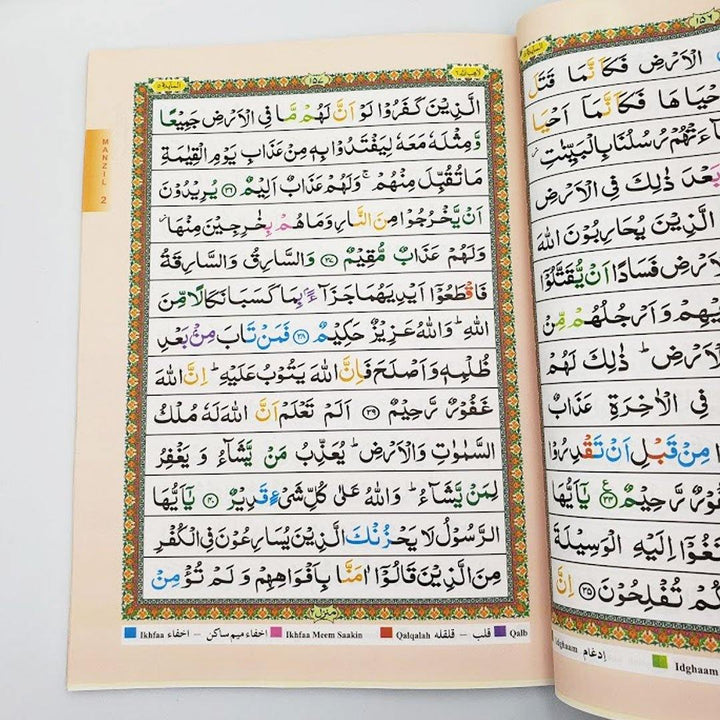 ١٥٦
الْاَرْضِ فَكَاَنَّمَا قَتَلَ
اَحْيَاهَا فَكَاَنَّمَاۤ اَحْيَا
جَآءَتْهُمْ رُسُلُنَا بِالْبَيِّنٰتِ
بَعْدَ ذٰلِكَ فِى الْاَرْضِ
الَّذِيْنَ يُحَارِبُوْنَ اللّٰهَ
الْاَرْضِ فَسَادًا اَنْ يُّقَتَّلُوْۤا
اَيْدِيْهِمْ وَاَرْجُلُهُمْ مِّنْ
الْاَرْضِ ؕ ذٰلِكَ لَهُمْ
فِى الْاٰخِرَةِ عَذَابٌ
مِنْ قَبْلِ اَنْ تَقْدِرُوْا
غَفُوْرٌ رَّحِيْمٌ ﴿٣٤﴾ يٰۤاَيُّهَا
وَابْتَغُوْۤا اِلَيْهِ الْوَسِيْلَةَ
لَعَلَّكُمْ تُفْلِحُوْنَ ﴿٣٥﴾ اِنَّ
ادغام Idghaam
Idghaam
المآئدة ٥ ١٥٧ لا يحب الله ٦
الَّذِيْنَ كَفَرُوْا لَوْ اَنَّ لَهُمْ مَّا فِى الْاَرْضِ جَمِيْعًا
وَّمِثْلَهٗ مَعَهٗ لِيَفْتَدُوْا بِهٖ مِنْ عَذَابِ يَوْمِ الْقِيٰمَةِ
مَا تُقُبِّلَ مِنْهُمْ ۚ وَلَهُمْ عَذَابٌ اَلِيْمٌ ﴿٣٦﴾ يُرِيْدُوْنَ
اَنْ يَّخْرُجُوْا مِنَ النَّارِ وَمَا هُمْ بِخٰرِجِيْنَ مِنْهَا ؗ
وَلَهُمْ عَذَابٌ مُّقِيْمٌ ﴿٣٧﴾ وَالسَّارِقُ وَالسَّارِقَةُ
فَاقْطَعُوْۤا اَيْدِيَهُمَا جَزَآءًۢ بِمَا كَسَبَا نَكَالًا مِّنَ
اللّٰهِ ؕ وَاللّٰهُ عَزِيْزٌ حَكِيْمٌ ﴿٣٨﴾ فَمَنْ تَابَ مِنْۢ بَعْدِ
ظُلْمِهٖ وَاَصْلَحَ فَاِنَّ اللّٰهَ يَتُوْبُ عَلَيْهِ ؕ اِنَّ اللّٰهَ
غَفُوْرٌ رَّحِيْمٌ ﴿٣٩﴾ اَلَمْ تَعْلَمْ اَنَّ اللّٰهَ لَهٗ مُلْكُ
السَّمٰوٰتِ وَالْاَرْضِ ؕ يُعَذِّبُ مَنْ يَّشَآءُ وَ يَغْفِرُ
لِمَنْ يَّشَآءُ ؕ وَاللّٰهُ عَلٰى كُلِّ شَىْءٍ قَدِيْرٌ ﴿٤٠﴾ يٰۤاَيُّهَا
الرَّسُوْلُ لَا يَحْزُنْكَ الَّذِيْنَ يُسَارِعُوْنَ فِى الْكُفْرِ
مِنَ الَّذِيْنَ قَالُوْۤا اٰمَنَّا بِاَفْوَاهِهِمْ وَلَمْ تُؤْمِنْ
منزل ٢
Ikhfaa اخفاء – اخفاء ميم ساكن Ikhfaa Meem Saakin Qalqalah قلقله – قلب Qalb
MANZIL 2